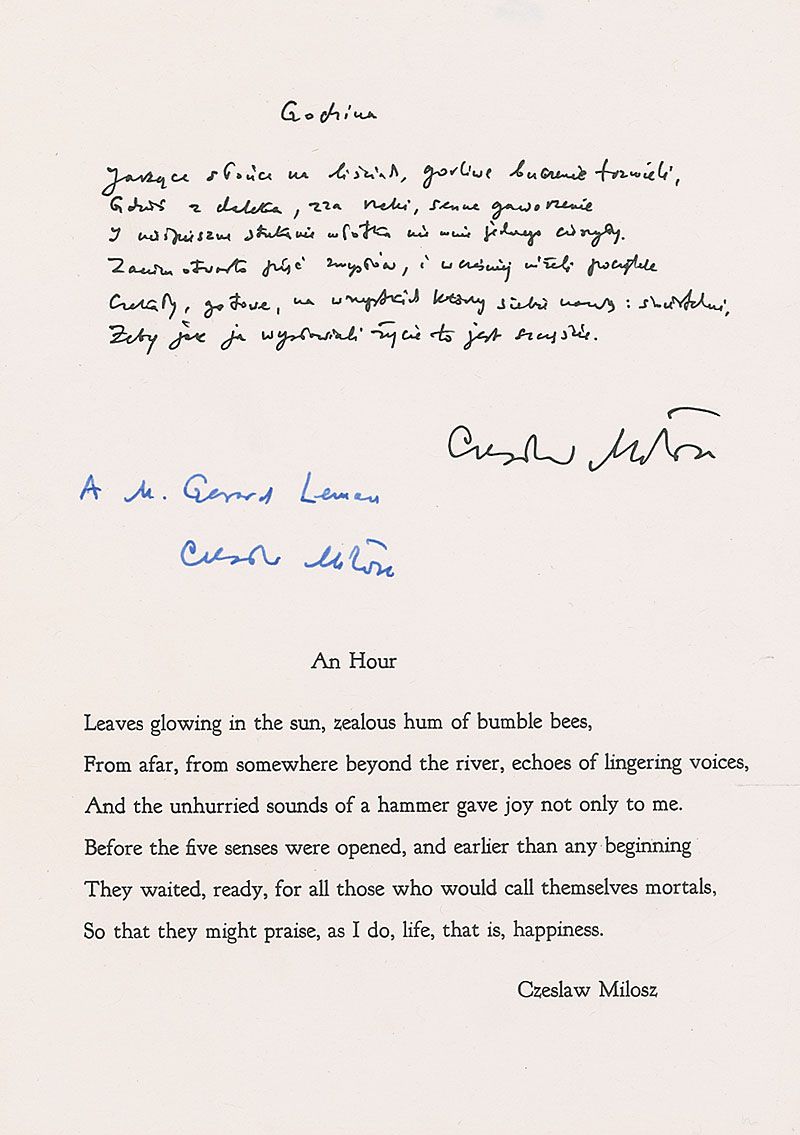 Godzina
Jarzące słońce na liściach, gorliwe buczenie trzmieli,
Gdzieś z daleka, zza rzeki, senne gaworzenie
I nieśpieszne stukanie młotka nie mnie jednego cieszyły.
Zanim otwarto pięć zmysłów, i wcześniej niżeli początek
Czekały, gotowe, na wszystkich którzy siebie nazwą: śmiertelni,
Żeby jak ja wysławiali życie to jest szczęście.
Czesław Miłosz
A M. Gerard Leman
Czesław Miłosz
An Hour
Leaves glowing in the sun, zealous hum of bumble bees,
From afar, from somewhere beyond the river, echoes of lingering voices,
And the unhurried sounds of a hammer gave joy not only to me.
Before the five senses were opened, and earlier than any beginning
They waited, ready, for all those who would call themselves mortals,
So that they might praise, as I do, life, that is, happiness.
Czeslaw Milosz